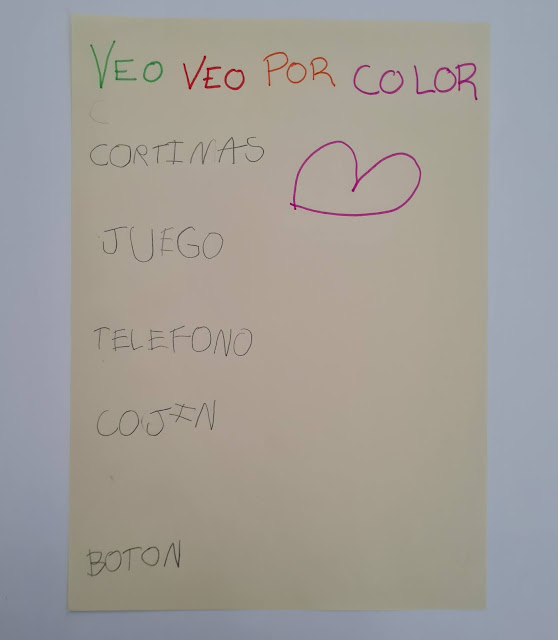 VEO VEO POR COLOR
C
CORTINAS
JUEGO
TELEFONO
COJIN
BOTON